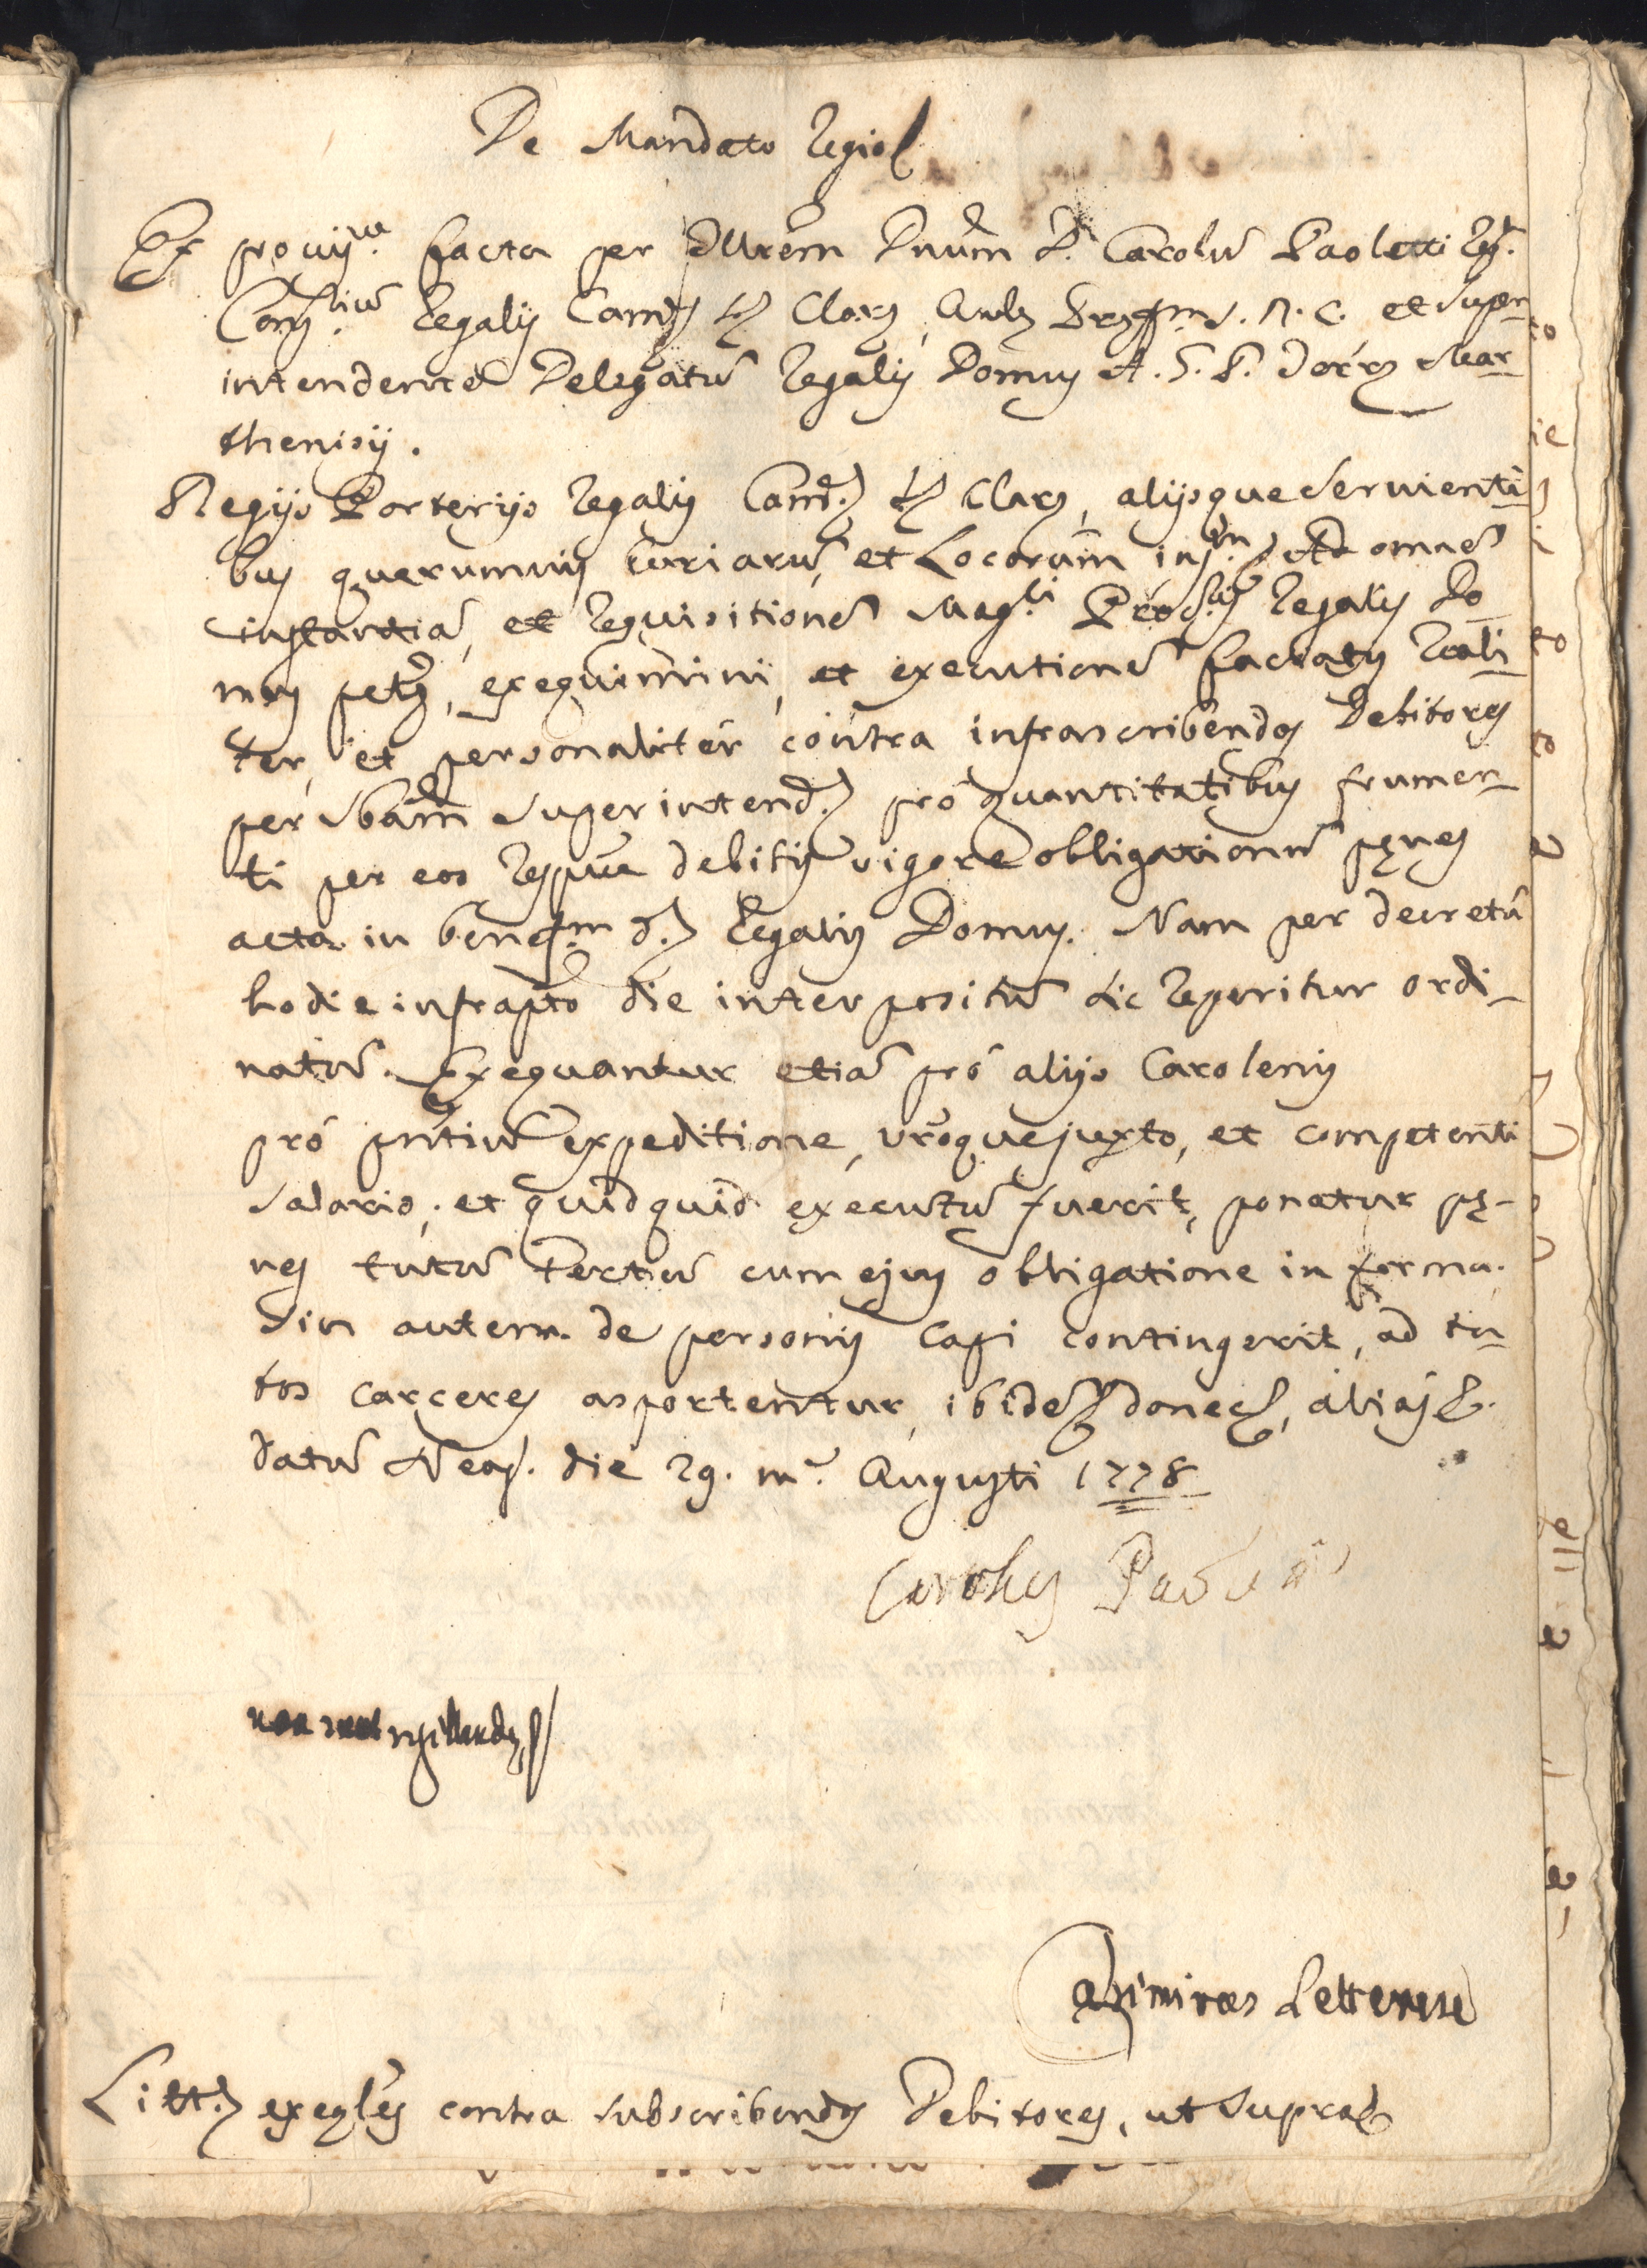 De Mandato Regio
Ex provis.ne facta per Illrem Dnum D. Carolu Paoletti Reg.
Cons.riu Regalis Cam. S. Clare, Aule Prefm S. R. C. et Super
intendente Delegatu Regalis Domus A. G. P.
thenisis.
Regijs Porterijs Regalis Cam. S. Clare, alijsque servienti
bus quarumvis Curiaru, et Locorum ins.m Ad omne
instantia, et requisitione Mag.ci Proc.ris Regalis Do
mus pets, exequimini, et executione faciatis reali
ter, et personaliter contra infrascribendos Debitores
per Superintend. pro quantitatibus frumen
ti per eos respve debitis vigore obligationu penes
acta in benefm d. Regalis Domus. Nam per decretu
hodie infrapto die interpositu sic reperitur ordi-
natu. Exequantur etia pro alijs Carolenis
pro pntiu expeditione, vroque justo, et competenti
salario; et quidquid executu fuerit, ponatur pe-
nes tutu tertiu cum ejus obligatione in forma.
Sin autem de personis capi contingerit, ad tu
tos carceres asportentur, ibide donec, alias
datu Neap. die 29. m. Augusti 1778
Carolus
Casimirus Letterese
Litt. exeqles contra subscribendos Debitores, ut supra